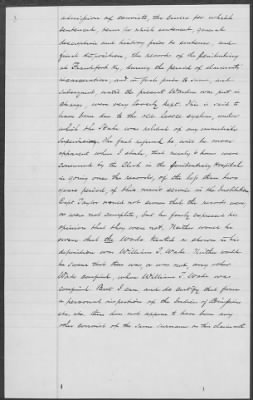 admission of convicts, the crime for which
sentenced, term for which sentenced, general
description and history prior to sentence, and
that the records of the penitentiary
at Frankfort Ky, during the period of claimants
incarceration, and
subsequent until the present Warden was put in
charge, were very loosely kept. This is said to
have been due to the old lease system, under
which the State was relieved of any immediate
supervision. This fact will be more
apparent when I state, that nearly 4 hours were
consumed by the Clerk in the penitentiary Hospital
in going over the records, of the less than two
years period, of this man's service in the Institution
Capt Taylor would not swear that the records were,
or were not complete, but he freely expressed his
opinion that they were not. Neither would he
swear that the Wake is shown in his
deposition was William T. Wake. Neither would
he swear that there was, or was not, any other
Wake confined, whose William T. Wake was
confined. But I can and do certify that from
a personal inspection of the Indices of Prisoners
etc. etc. there does not appear to have been any
other convict of the same surname as this claimants